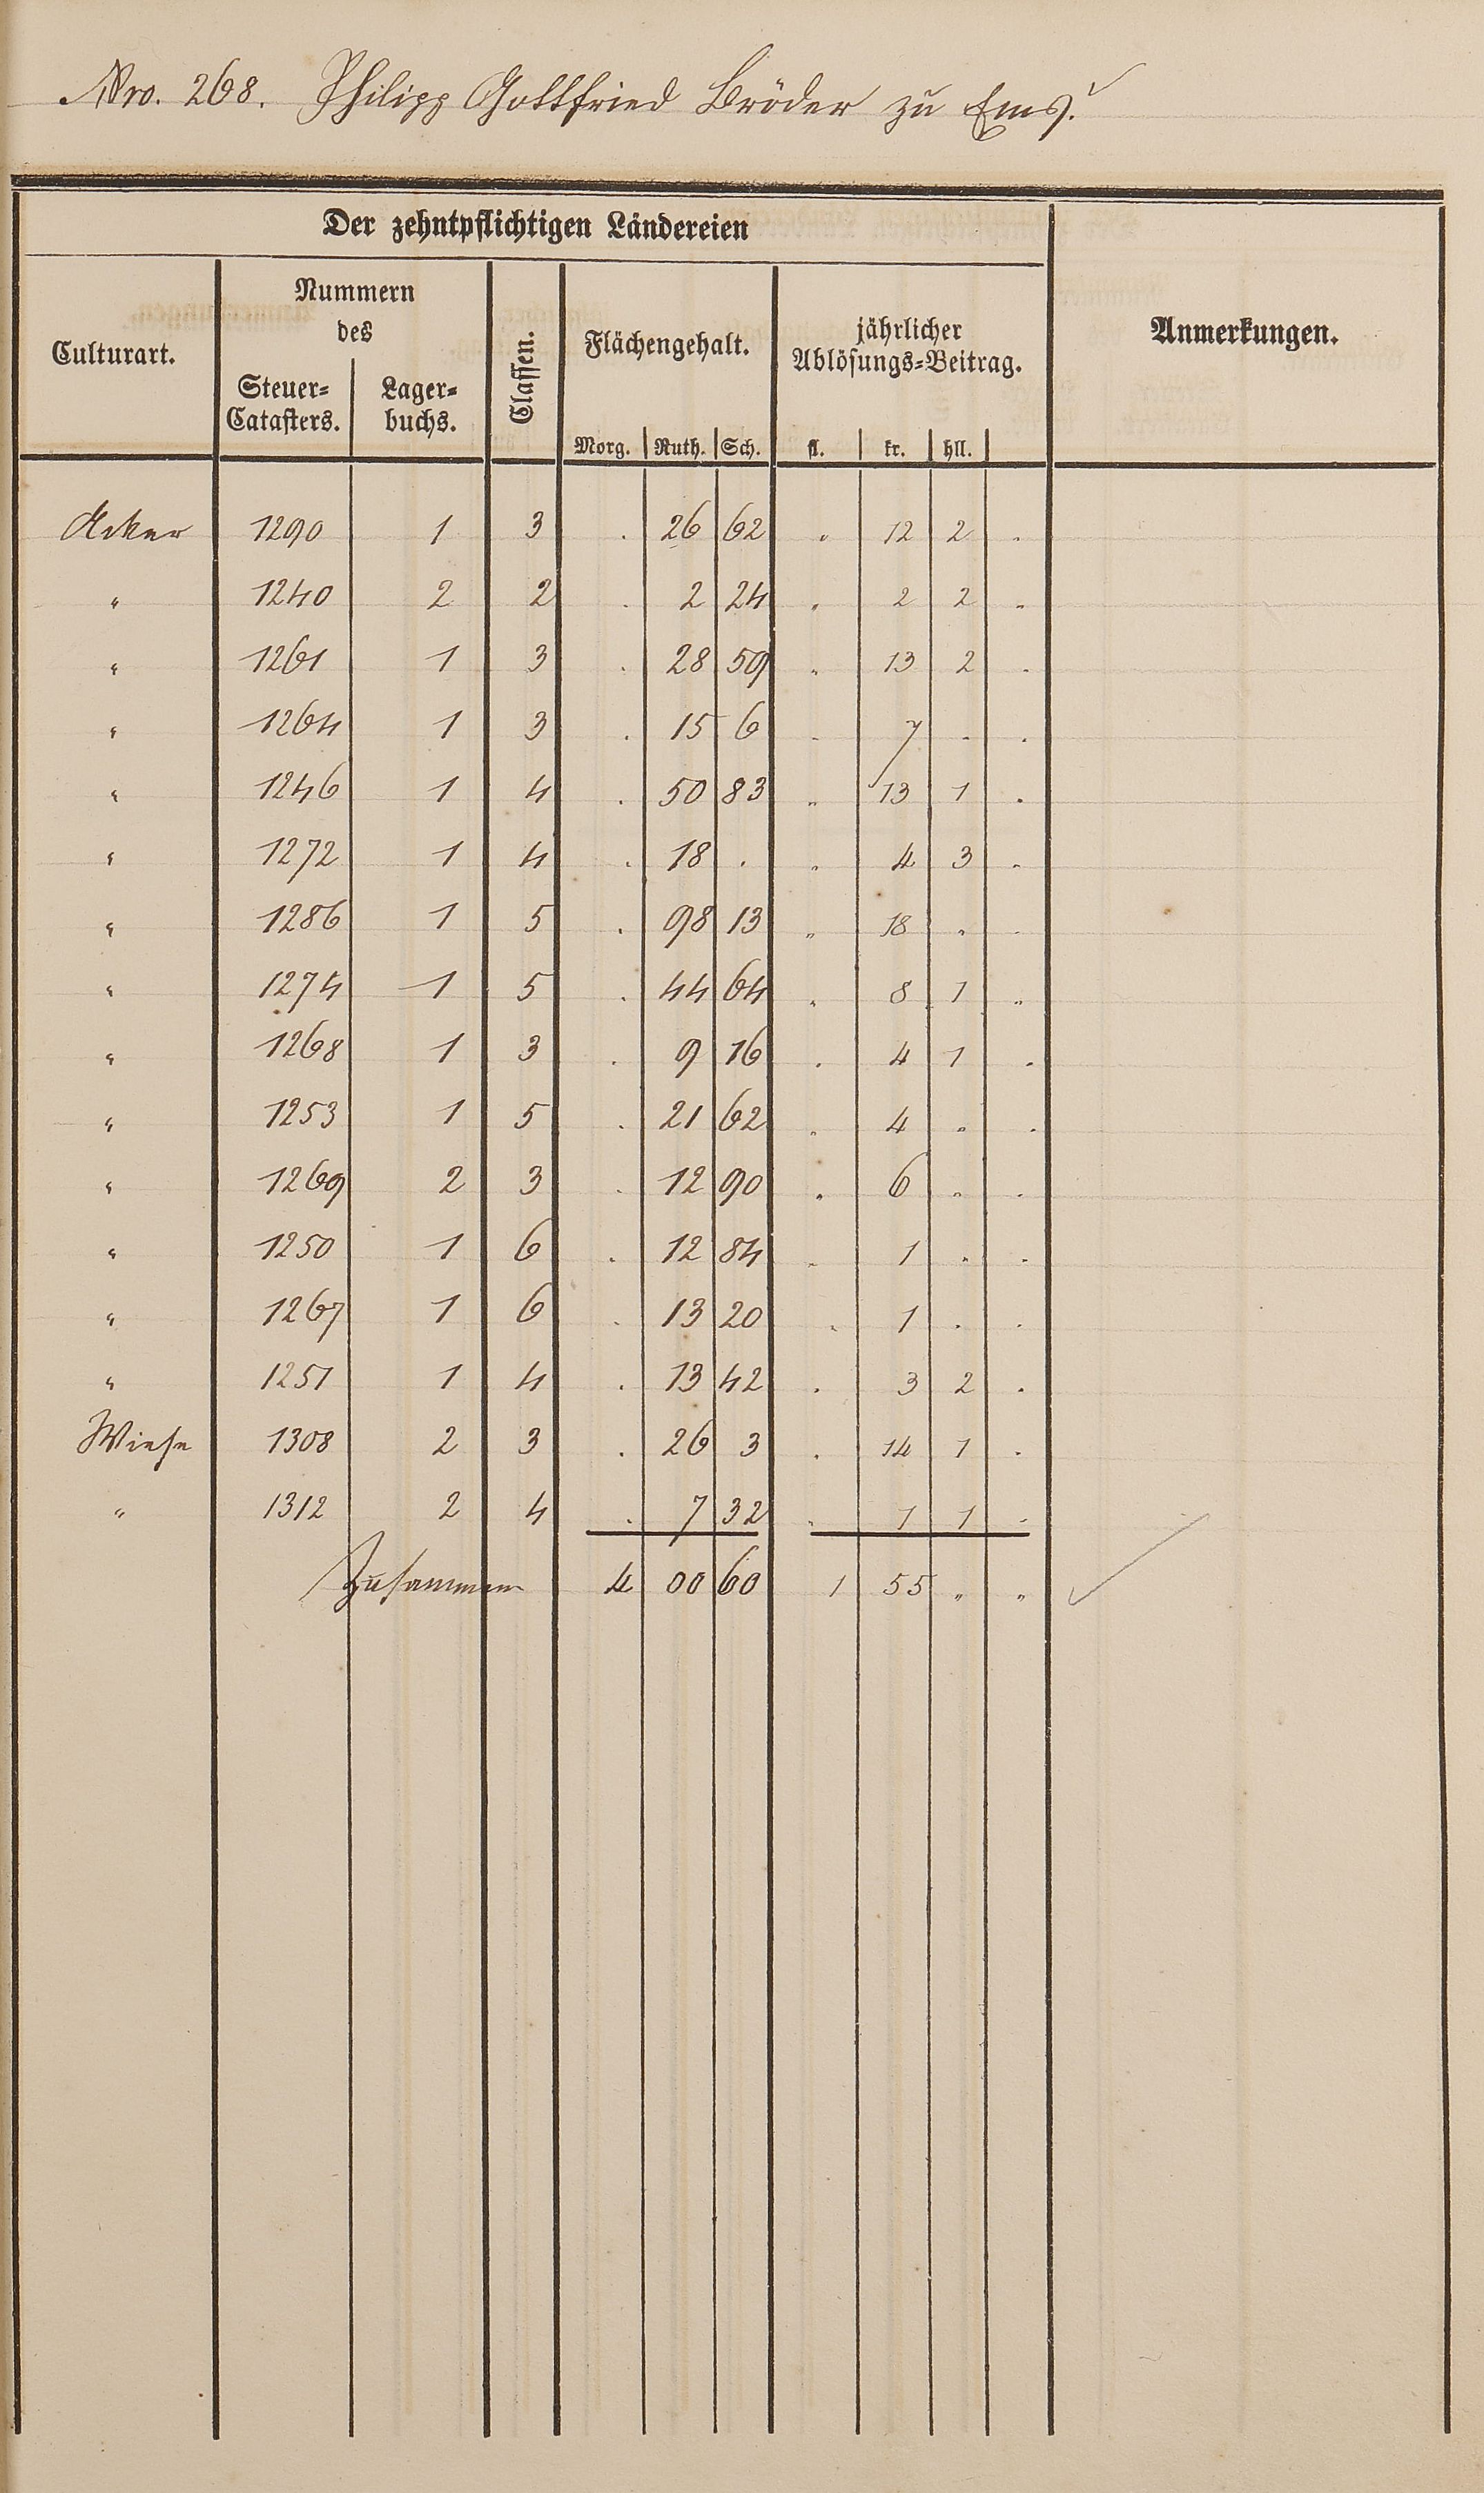 Nro. 268. Philipp Gottfried Bröder zu Ems.
Der zehntpflichtigen Ländereien
Culturart.
Nummern
des
Steuer-
Catasters.
Lager-
buchs.
Classen.
Flächengehalt.
Morg. Ruth. Sch.
jährlicher
Ablösungs-Beitrag.
fl. kr. hll.
Anmerkungen.
Acker 1290 1 3 . 26 62 „ 12 2 .
„ 1240 2 2 . 2 24 „ 2 2 .
„ 1261 1 3 . 28 59 „ 13 2 .
„ 1264 1 3 . 15 6 . 7 . .
„ 1246 1 4 . 50 83 „ 13 1 .
„ 1272 1 4 . 18 . „ 4 3 .
„ 1286 1 5 . 98 13 „ 18 . .
„ 1274 1 5 . 44 64 „ 8 1 „
„ 1268 1 3 . 9 16 . 4 1 .
„ 1253 1 5 . 21 62 „ 4 „ .
„ 1269 2 3 . 12 90 „ 6 „ .
„ 1250 1 6 . 12 84 „ 1 . .
„ 1267 1 6 . 13 20 . 1 . .
„ 1251 1 4 . 13 42 . 3 2 .
Wiese 1308 2 3 . 26 3 . 14 1 .
„ 1312 2 4 . 7 32 . 1 1 .
Zusammen 4 00 60 1 55 „ „